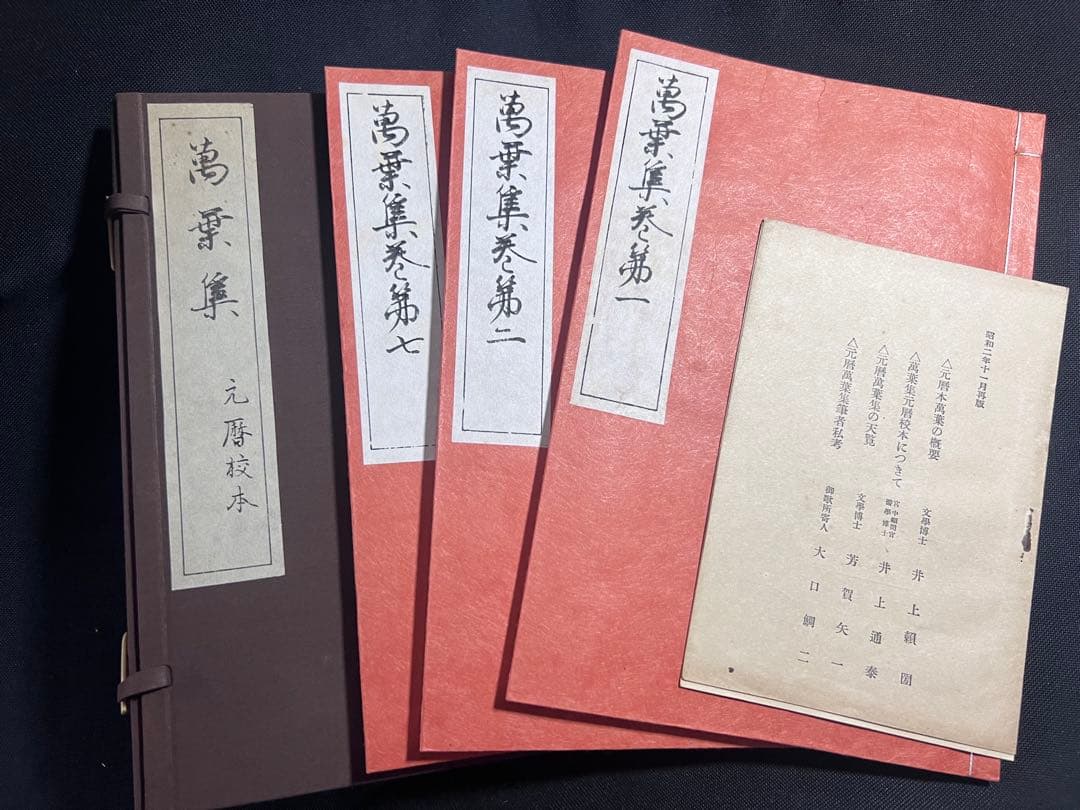 萬葉集
元暦校本
萬葉集巻第七
萬葉集巻第二
萬葉集巻第一
昭和二年十一月再版
△元暦本萬葉の概要
文學博士 井上頼圀
△萬葉集元暦校本につきて
宮中顧問官
醫學博士
井上通泰
△元暦萬葉集の天覧
文學博士 芳賀矢一
△元暦萬葉集筆者私考
御歌所寄人 大口鯛二